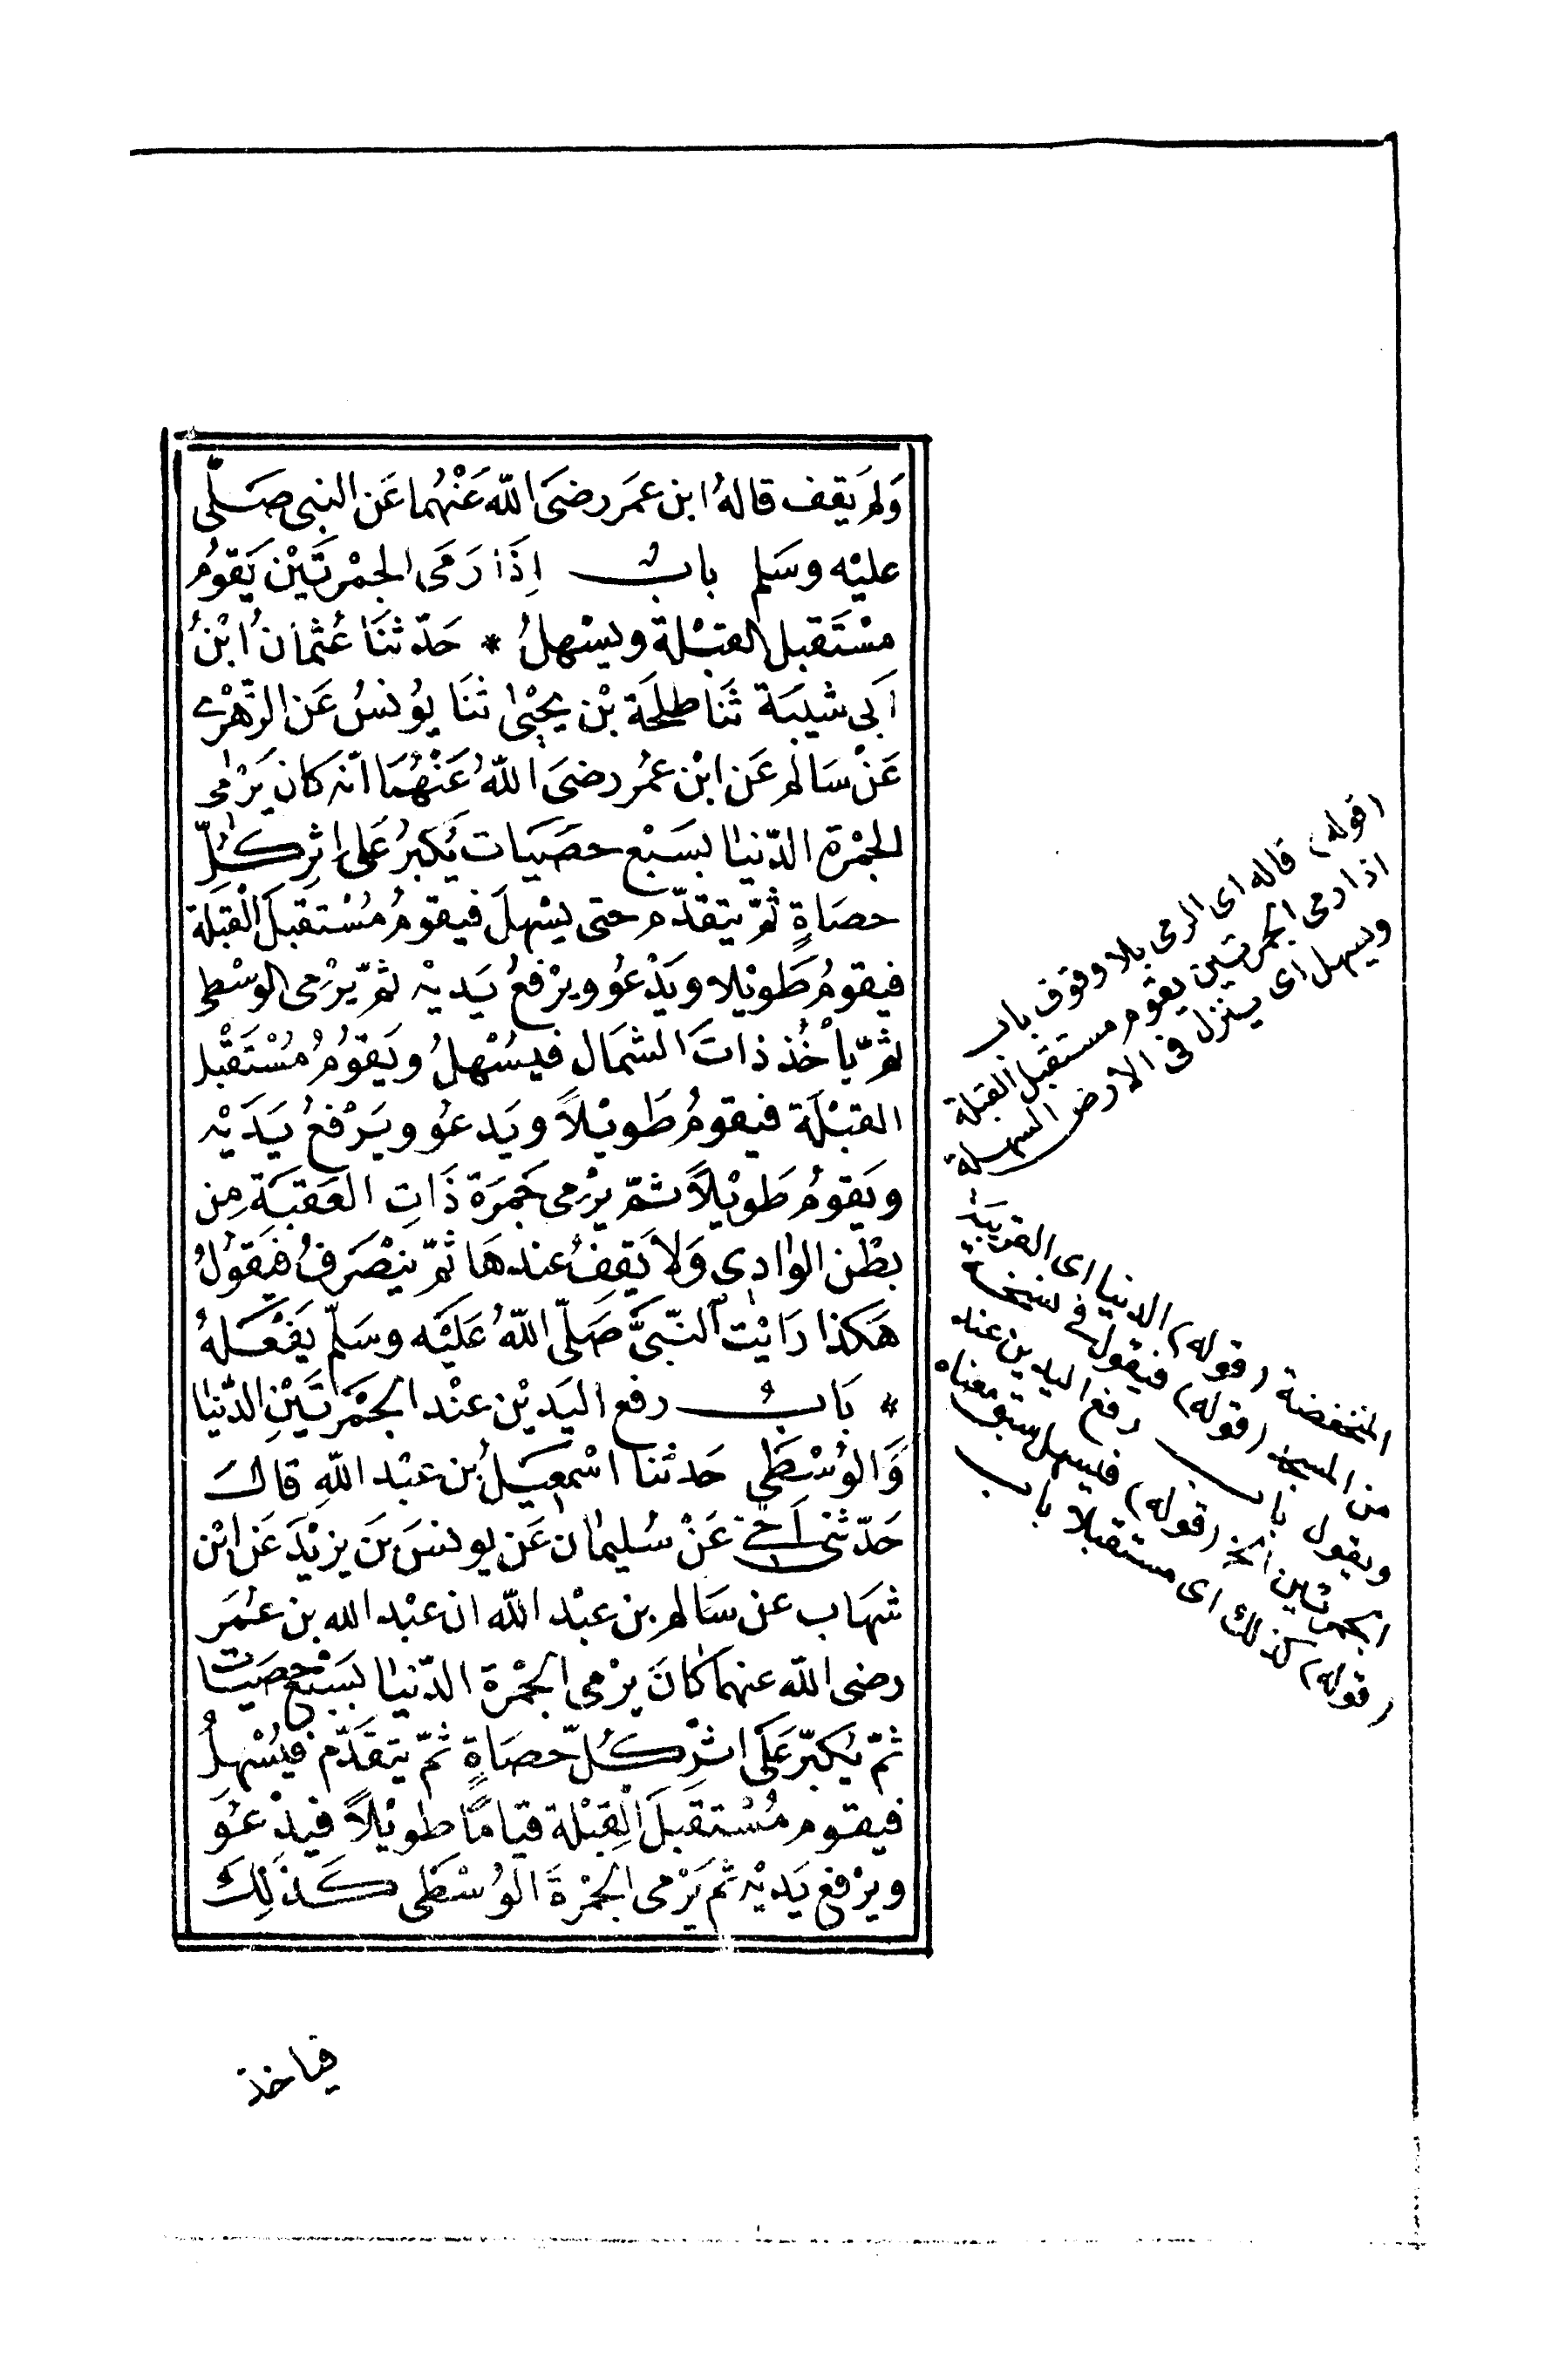 وَلم يَقف قالهُ ابن عمَر رضىَ اللّه عَنْهُما عَن النبى صَلّى
عليْه وسَلم بابٌ اِذَا رَمَى الجمْرتَيْن يَقومُ
مسْتَقبل القبْلة ويسْهلُ * حَدّثنَا عُثمانُ ابْنُ
اَبى شيبَة ثنَا طلحَة بْن يحيْى ثنَا يُونسُ عَن الزّهْرى
عَنْ سَالم عَن ابْن عمُر رضىَ اللّهُ عَنْهُمَا انّه كانَ يَرْمى
الجمْرة الدّنيا بسَبْع حصَيَات يُكبرُ عَلى اِثِر كُلّ
حصَاةٍ ثمّ يتقدّم حتى يسْهلَ فيقومُ مُسْتَقبلَ الْقبْلَة
فيقومُ طَويْلا ويَدْعُو ويرْفعُ يَديْه ثمّ يَرْمى الوسْطى
ثمّ يأخُذ ذاتَ الشمَال فيسُهلُ ويَقوُمُ مُسْتَقْبل
القبْلَة فيقومُ طَويْلاً ويَدعُو ويَرْفعُ يَدَيْه
ويَقومُ طَويْلاً ثمّ يرْمى جَمرَة ذَاتِ العَقبَةِ مِن
بطْن الوادِى وَلاَ يَقِفُ عندهَا ثمّ ينْصَرفُ فيَقوُلُ
هَكذا رَايْت النّبىَّ صَلّى اللّهُ عَلَيْه وسَلّم يَفعَلهُ
* بَابُ رفع اليَديْن عنْد الجمْرَتَيْنِ الدّنيا
وَالوُسْطَى حَدثنا اسْمعيَلُ بن عبْد اللّهِ قالَ
حَدّثنى اَخى عَنْ سُليمان عَن يونسَ بن يزيْدَ عَن ابْن
شهَاب عن سَالم بن عبْد اللّه ان عبْد الله بن عمَر
رضى اللّه عنهما كانَ يرْمى الجمْرة الدّنيا بسَبْع حصَيَات
ثمّ يُكبّر عَلَى اثْرِ كُلّ حصَاةٍ ثمّ يتقَدّم فيُسْهلُ
فيقوم مُسْتقبَلَ الْقِبْلة قيامًا طويْلاً فيدْعُو
ويرْفع يَديْه ثم يَرْمى الجمْرةَ الوُسْطَى كَذَلِكَ
(قوله) قاله اى الرمى بلا وقوف باب
اذا رمى الجمرتين يقوم مستقبل القبلة
ويسهل اى ينزل فى الارض السهلة
المنخفضة (قوله) الدنيا اى القريبة
من المسجد (قوله) فيقول فى نسخة
ويقول باب رفع اليدين عند
الجمرتين الخ (قوله) فيسهل سبق معناه
(قوله) كذلك اى مستقبلا باب
فياخذ